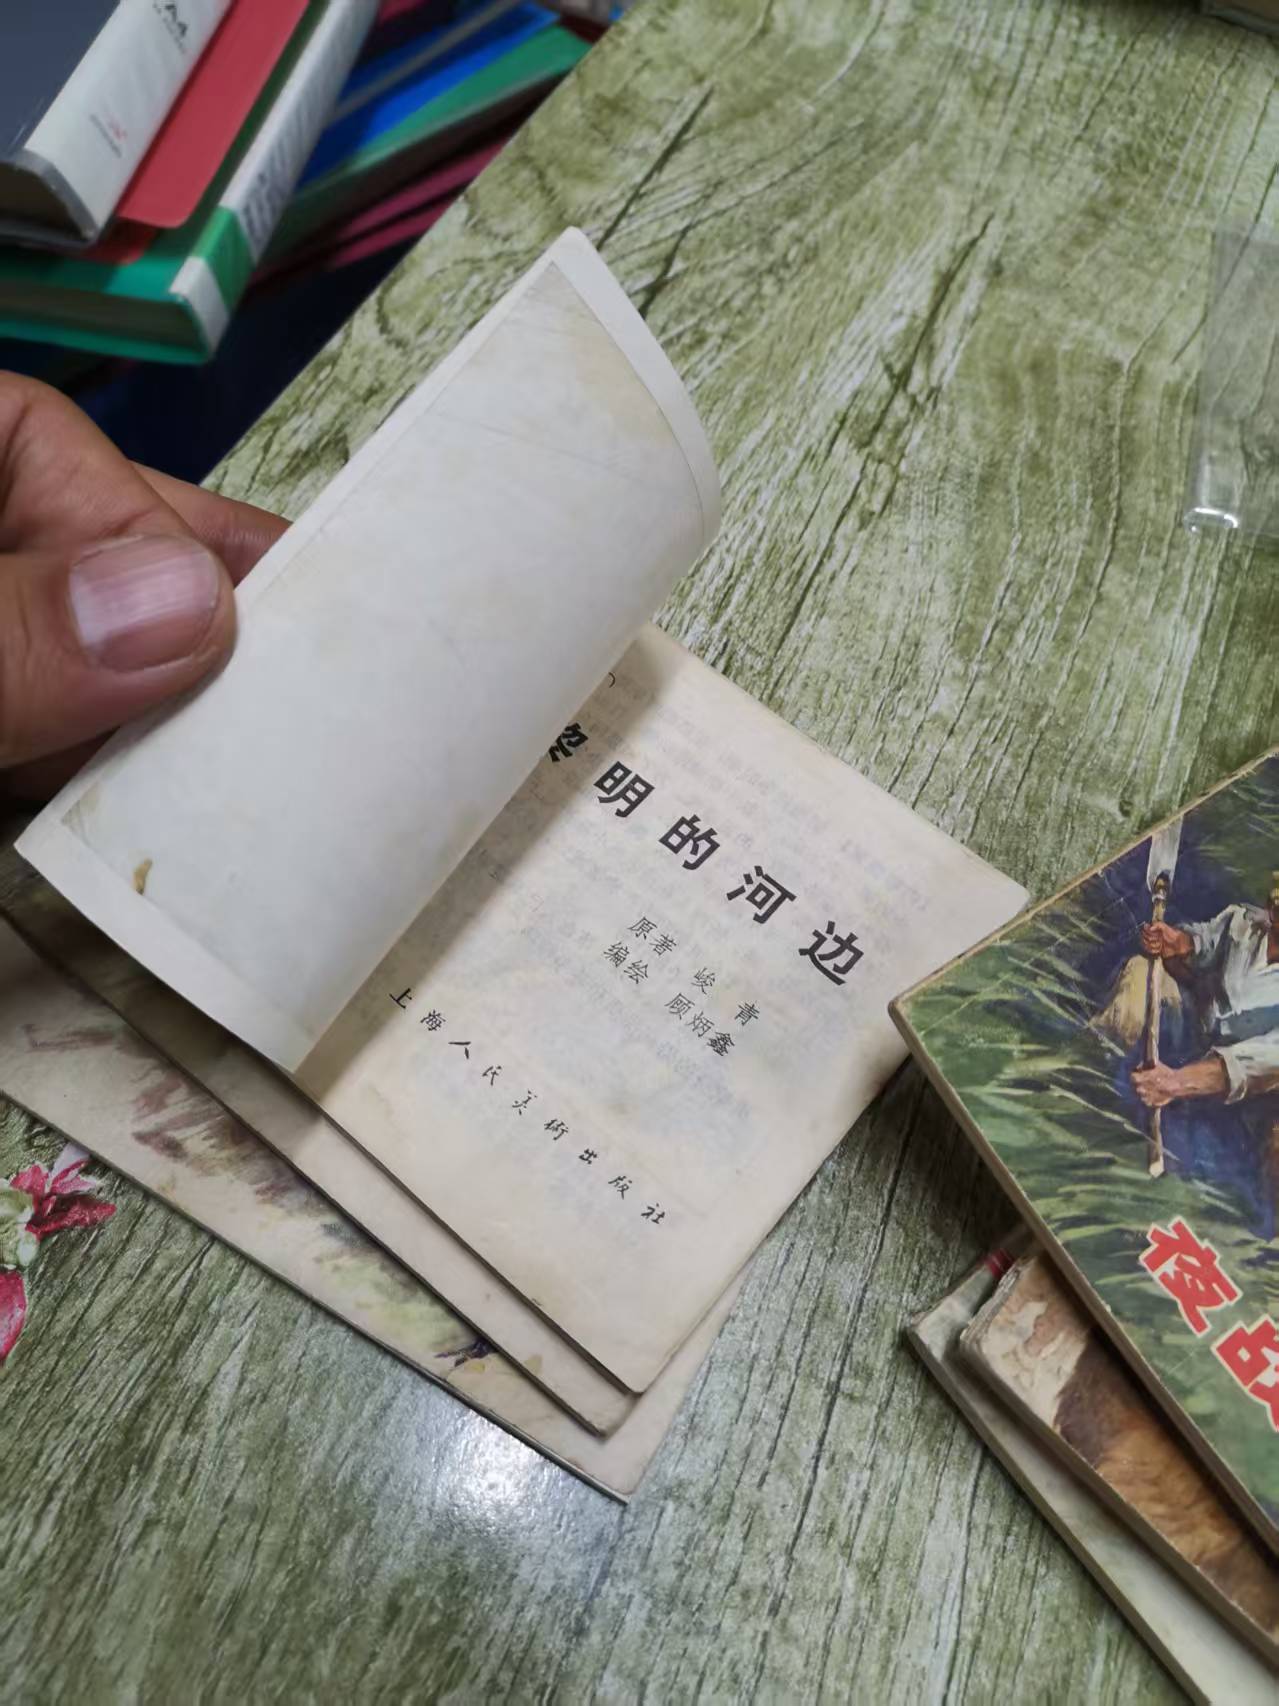 黎明的河边
原著 峻青
编绘 顾炳鑫
上海人民美術出版社
夜战